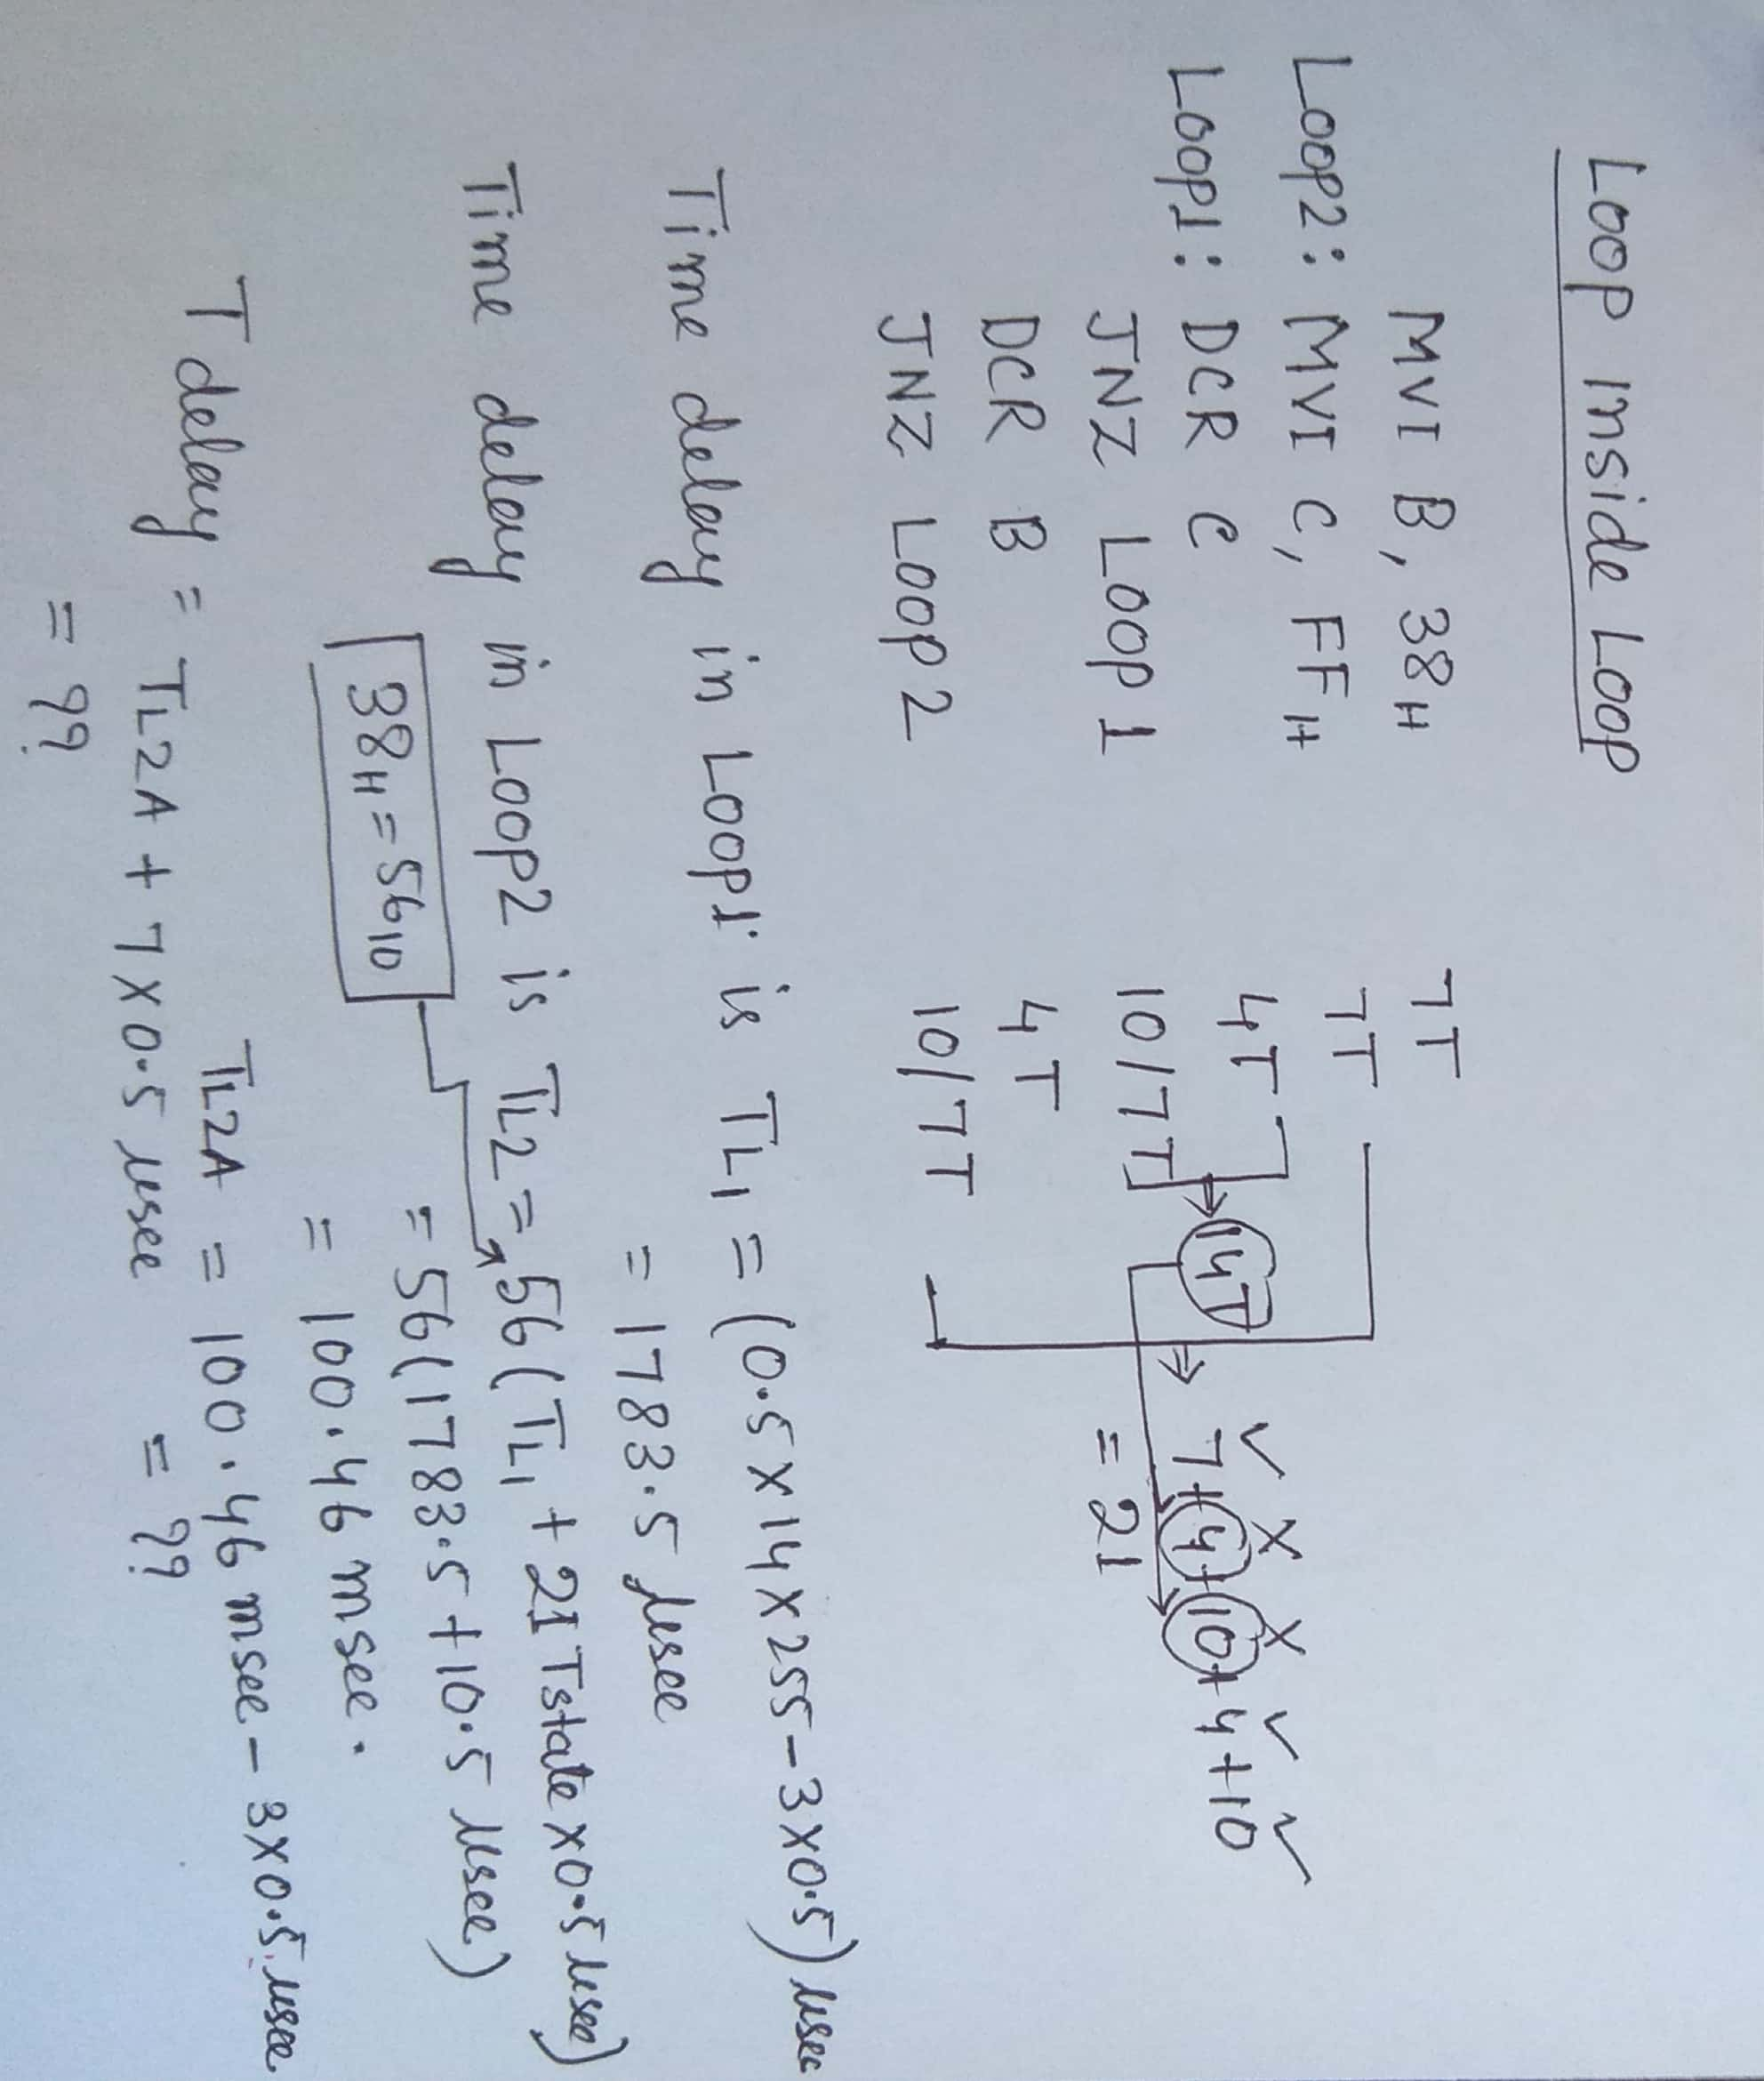 Loop Inside Loop
MVI B, 38H 7T
Loop2: MVI C, FFH 7T
Loop1: DCR C 4T
JNZ Loop1 10/7T
14T
7+4+10+4+10
= 21
DCR B 4T
JNZ Loop2 10/7T
Time delay in Loop1 is TL1 = (0.5×14×255-3×0.5) μsec
= 1783.5 μsec
Time delay in Loop2 is TL2 = 56(TL1 + 21 Tstate×0.5 μsec)
38H = 5610
= 56(1783.5+10.5 μsec)
= 100.46 msec.
TL2A = 100.46 msec - 3×0.5 μsec
= ??
T delay = TL2A + 7×0.5 μsec
= ??